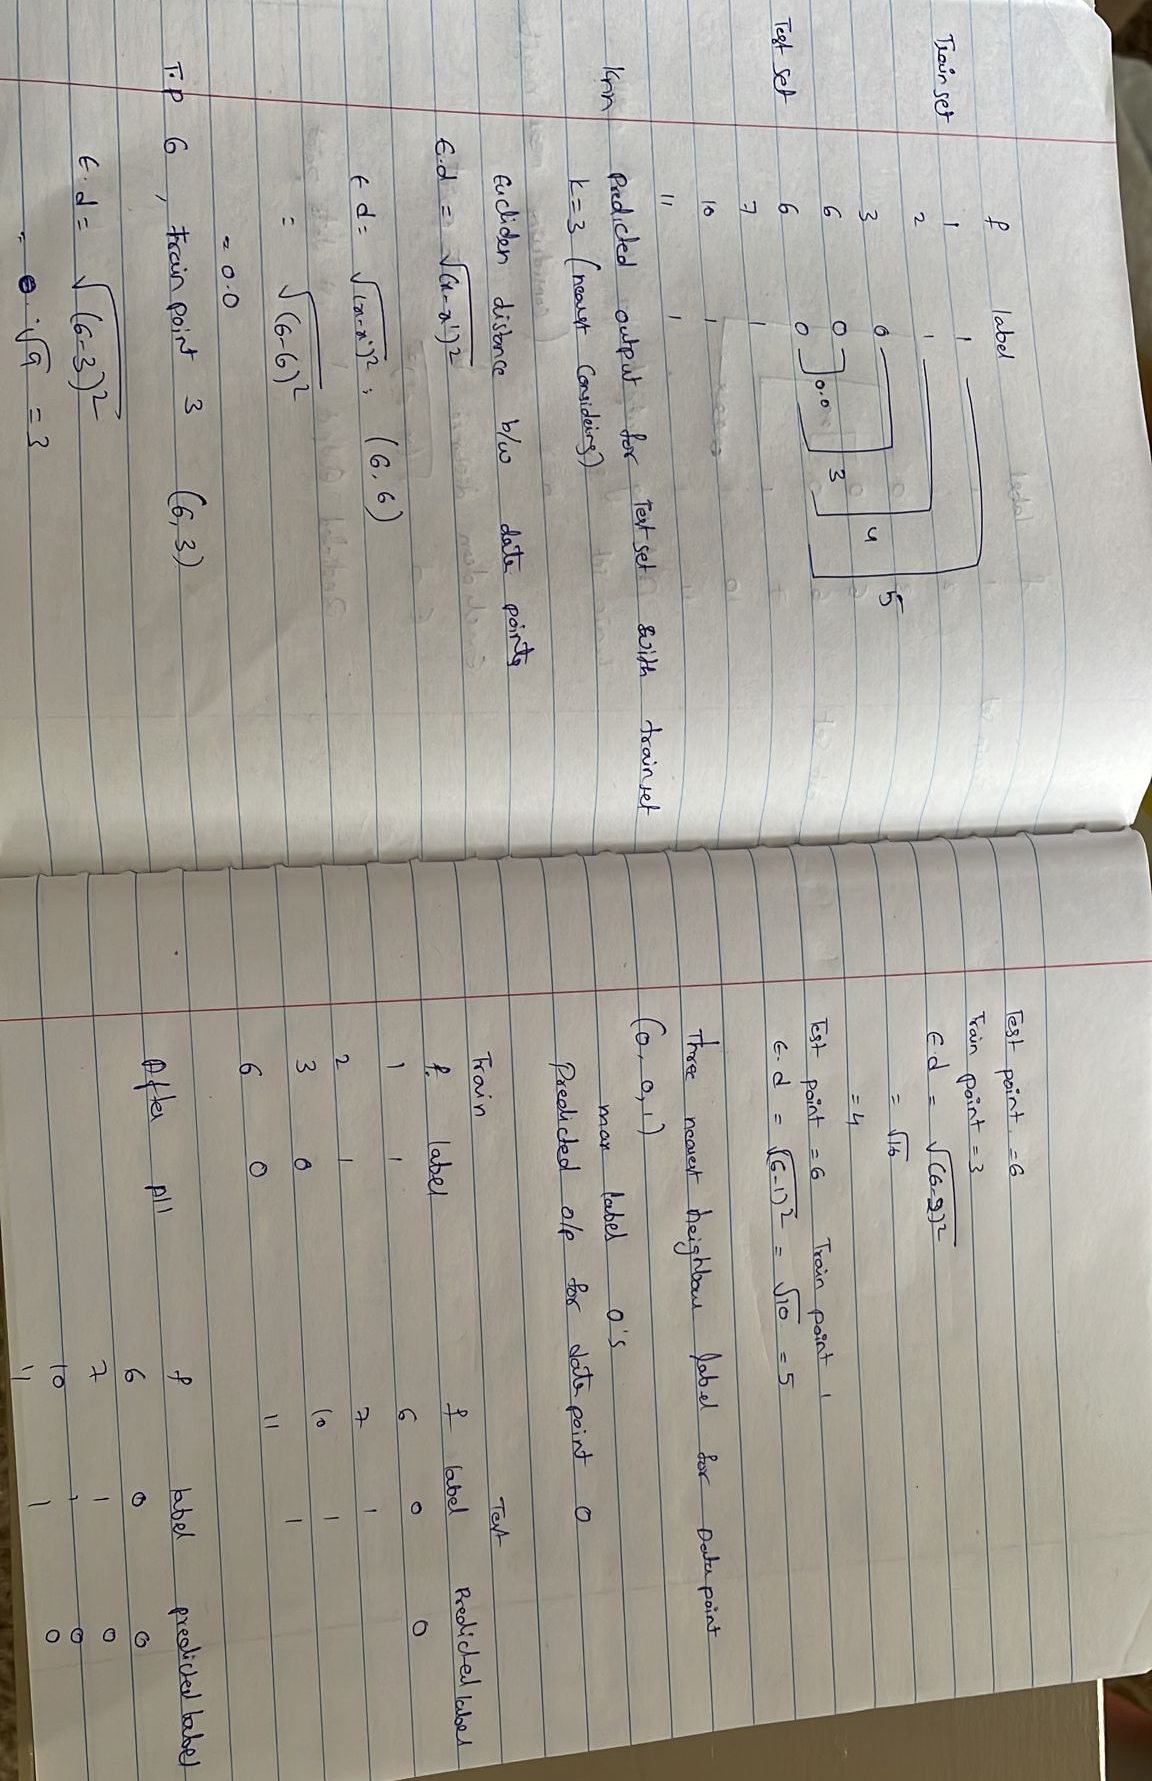 f label
Train set 1 1
2 1
3 0
6 0
Test set 6 0
7 1
10 1
11 1
0.0
3
4
5
Knn Predicted output for Test set with train set
k=3 (nearest Considering)
Eucliden distance b/w data points
E.d = √(x-x')²
E d = √(x-x')² ; (6,6)
= √(6-6)²
= 0.0
T.P 6 , train point 3 (6,3)
E.d = √(6-3)²
= √9 = 3
Test point = 6
Train point = 3
E.d = √(6-2)²
= √16
= 4
Test point = 6 Train point 1
E.d = √(6-1)² = √10 = 5
Three nearest neighbour label for Data point
(0, 0, 1)
max label 0's
Predicted o/p for data point 0
Train Test
f. label f label Predicted label
1 1 6 0 0
2 1 7 1
3 0 10 1
6 0 11 1
After All
f label predicted label
6 0 0
7 1 0
10 1 0
11 1 0